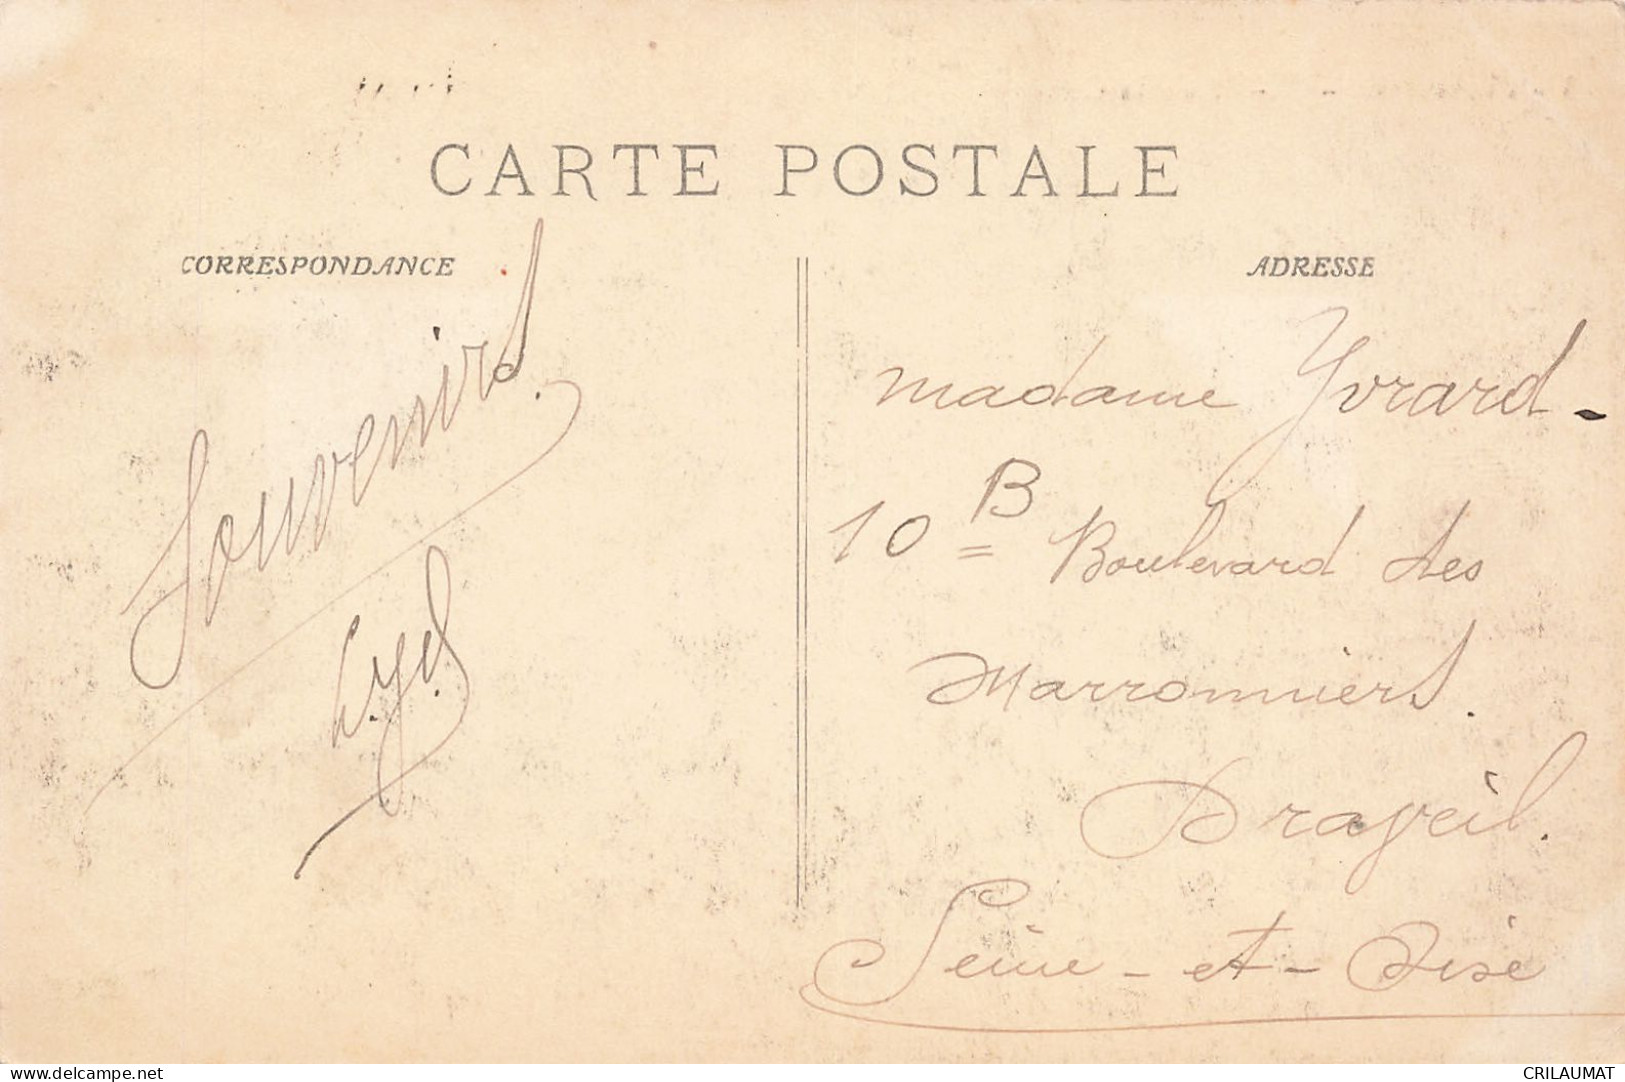 CARTE POSTALE
CORRESPONDANCE
ADRESSE
Souvenirs.
madame Yvrard -
10 B = Boulevard des
Marronniers.
Draveil.
Seine-et-Oise
delcampe.net
CRILAUMAT